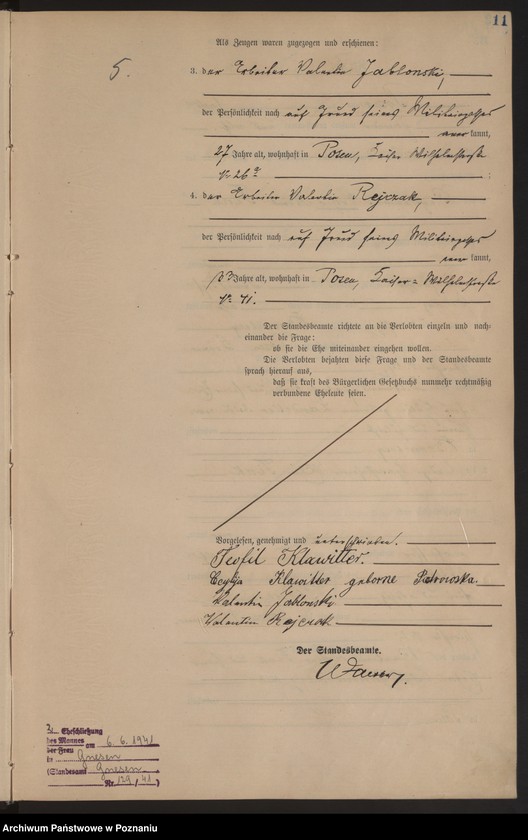 11
Als Zeugen waren zugezogen und erschienen:
5.
3. der Arbeiter Valentin Jablonski,
der Persönlichkeit nach auf Grund seines Militärpasses
kannt,
27 Jahre alt, wohnhaft in Posen, Kaiser Wilhelmstraße
Nr. 26a ;
4. der Arbeiter Valentin Rejczak,
der Persönlichkeit nach auf Grund seines Militärpasses
kannt,
33 Jahre alt, wohnhaft in Posen, Kaiser = Wilhelmstraße
Nr. 41.
Der Standesbeamte richtete an die Verlobten einzeln und nach-
einander die Frage:
ob sie die Ehe miteinander eingehen wollen.
Die Verlobten bejahten diese Frage und der Standesbeamte
sprach hierauf aus,
daß sie kraft des Bürgerlichen Gesetzbuchs nunmehr rechtmäßig
verbundene Eheleute seien.
Vorgelesen, genehmigt und unterschrieben.
Teofil Klawitter.
Klawitter geborne Piotrowska.
Valentin Jablonski
Valentin Rejczak
Der Standesbeamte.
2. Eheschließung
des Mannes
der Frau am 6. 6. 1941
in Gnesen
(Standesamt Gnesen
Nr. 129/41)
Archiwum Państwowe w Poznaniu